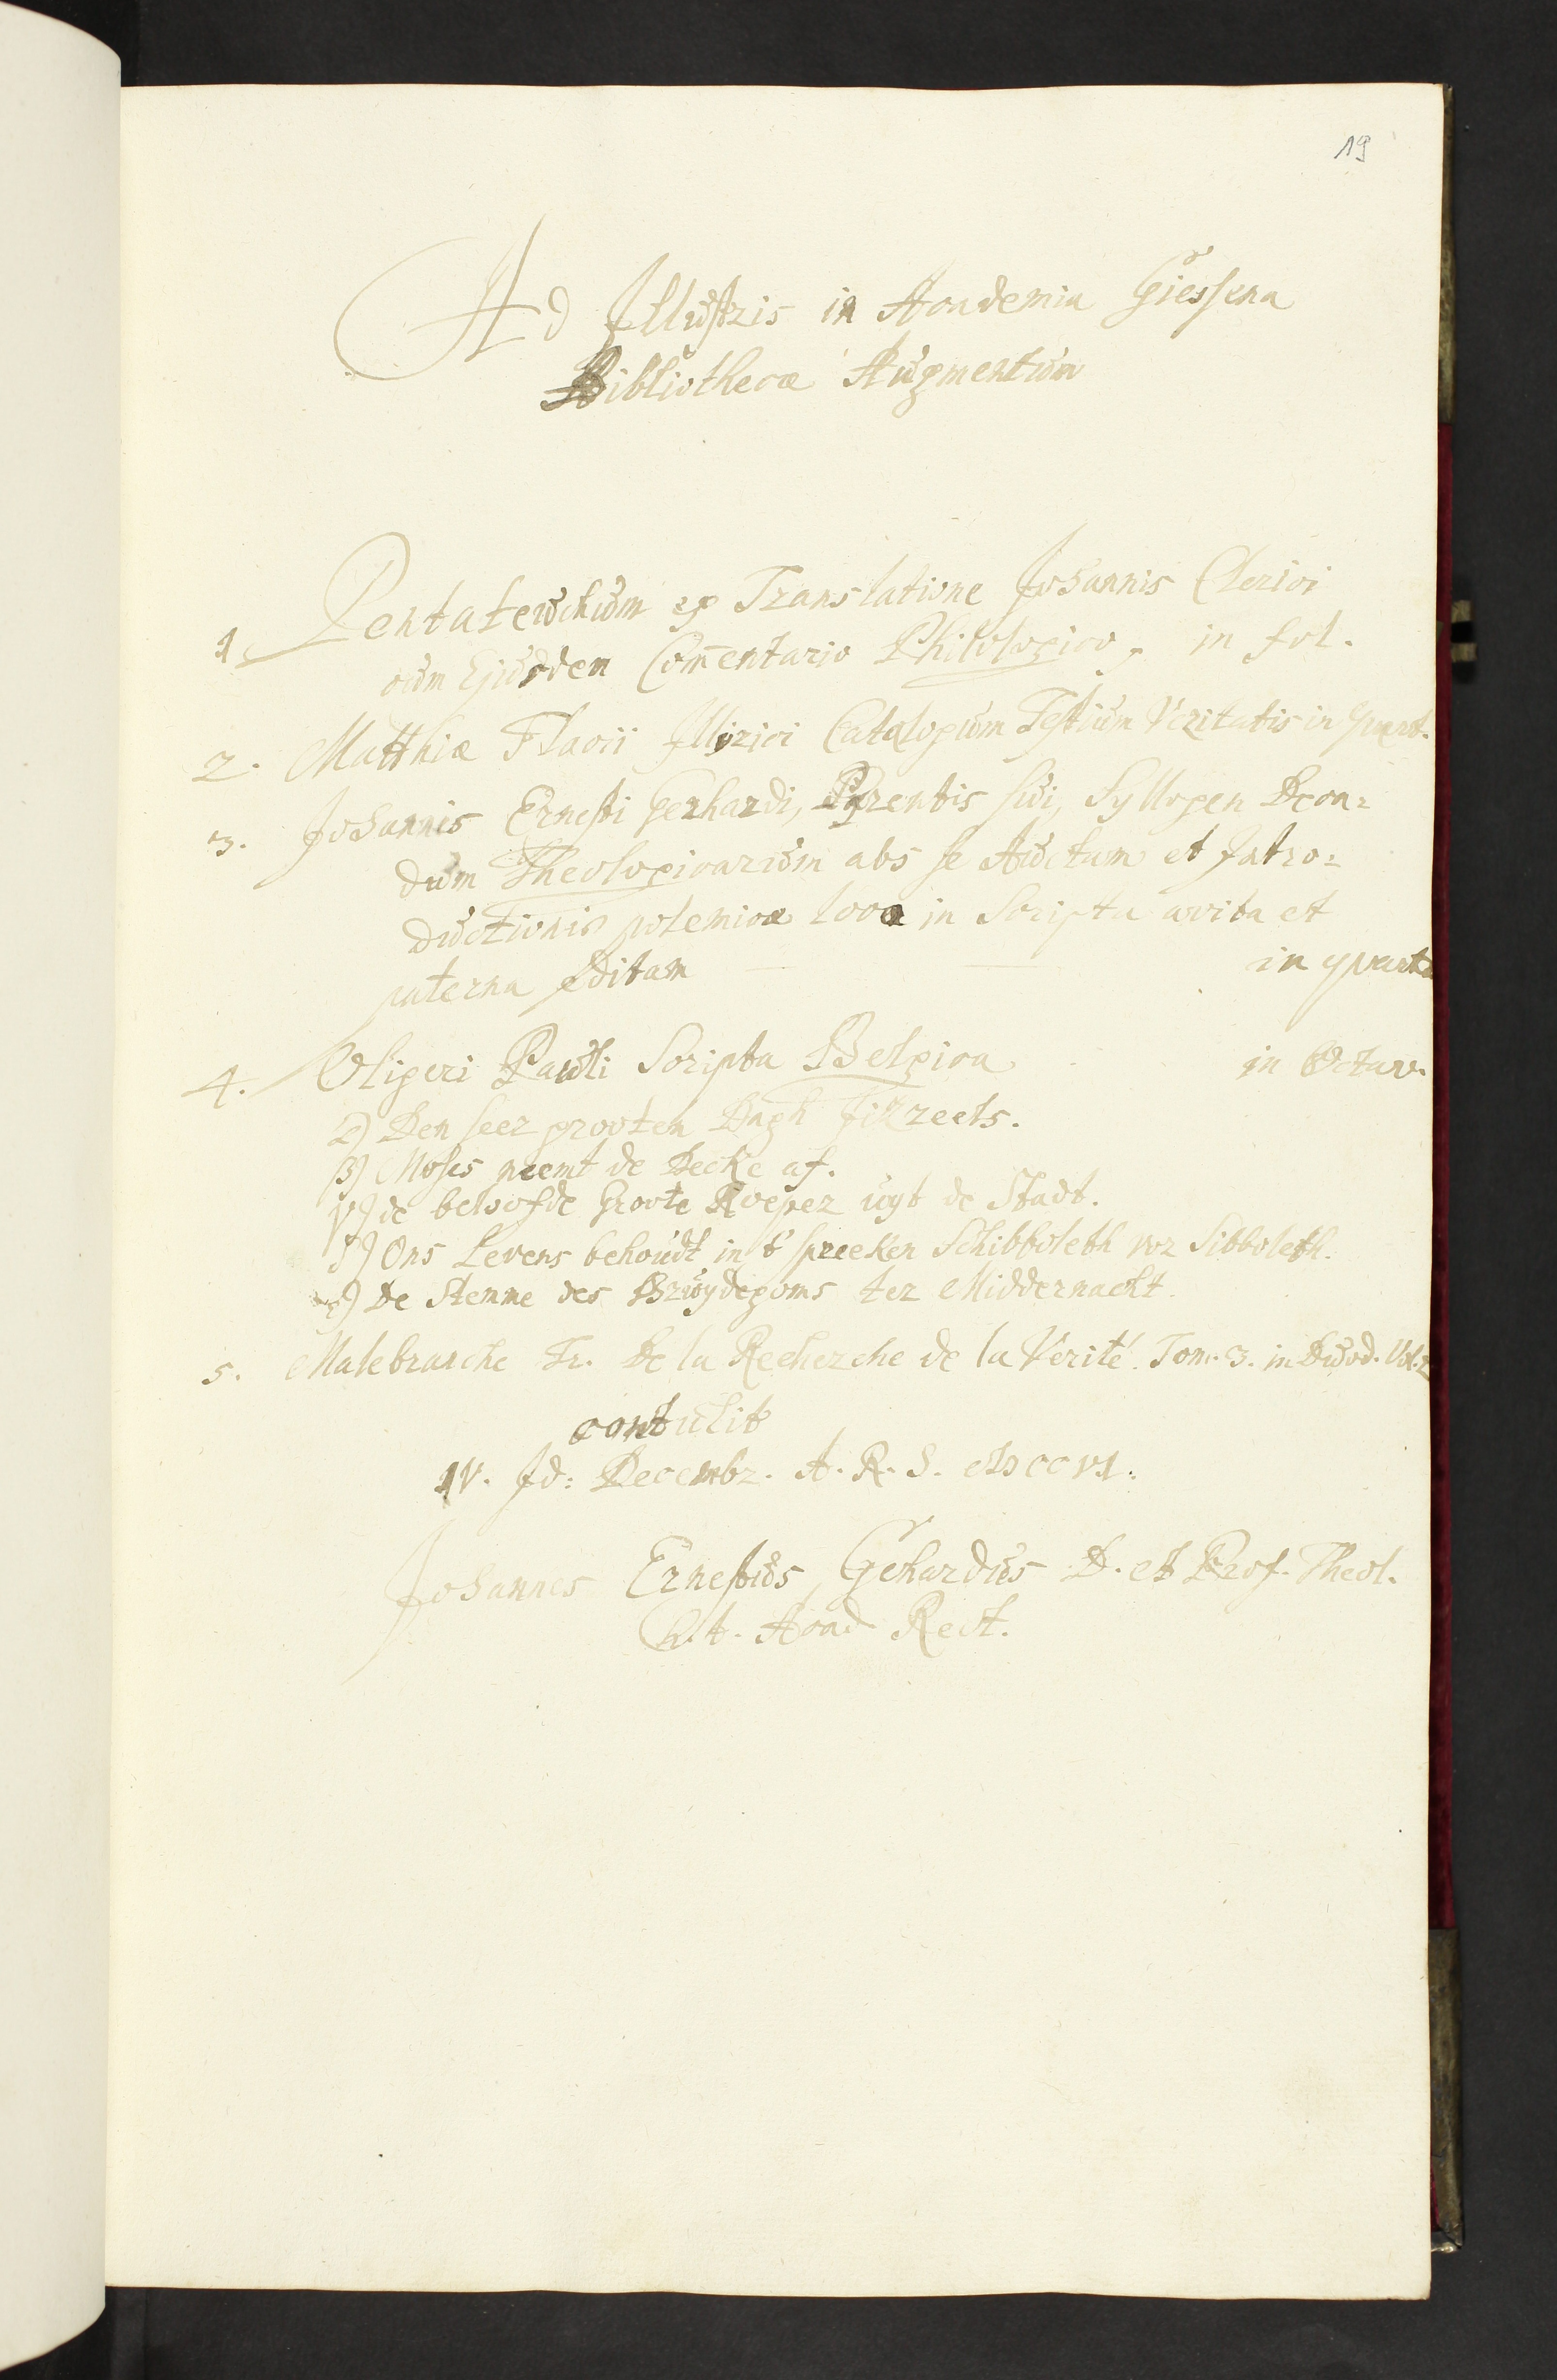 19
Ad Illustris in Academia Giessena
Bibliothecæ Augmentum
1. Pentateuchum ex Translatione Johannis Clerici
cum Ejusdem Com̄entario Philologico, in fol.
2. Matthiæ Flacii Illyrici Catalogum Testium Veritatis in quart.
3. Johannis Ernesti Gerhardi, Parentis sui, Syllogen Deca=
dum Theologicarum abs se Auctam et Intro=
ductionis polemicæ loco in Scripta avita et
paterna Editam in quarto
4. Oligeri Pauli Scripta Belgica in Octav.
α) Den seer grooten Dagh Jizreels.
β) Moses neemt de Decke af.
γ) de beloofde Groote Roeper uyt de Stadt.
δ) Ons Levens behoudt in t' spreeken Schibboleth vor Sibboleth.
ε) De Stemme des Bruydegoms ter Middernacht.
5. Malebranche Fr. De la Recherche de la Verité. Tom. 3. in Duod. Vol. 2
contulit
IV. Id: Decembr. A. R. S. cIɔIɔccvI.
Johannes Ernestus Gehardus D. et Prof. Theol.
h. t. Acad Rect.